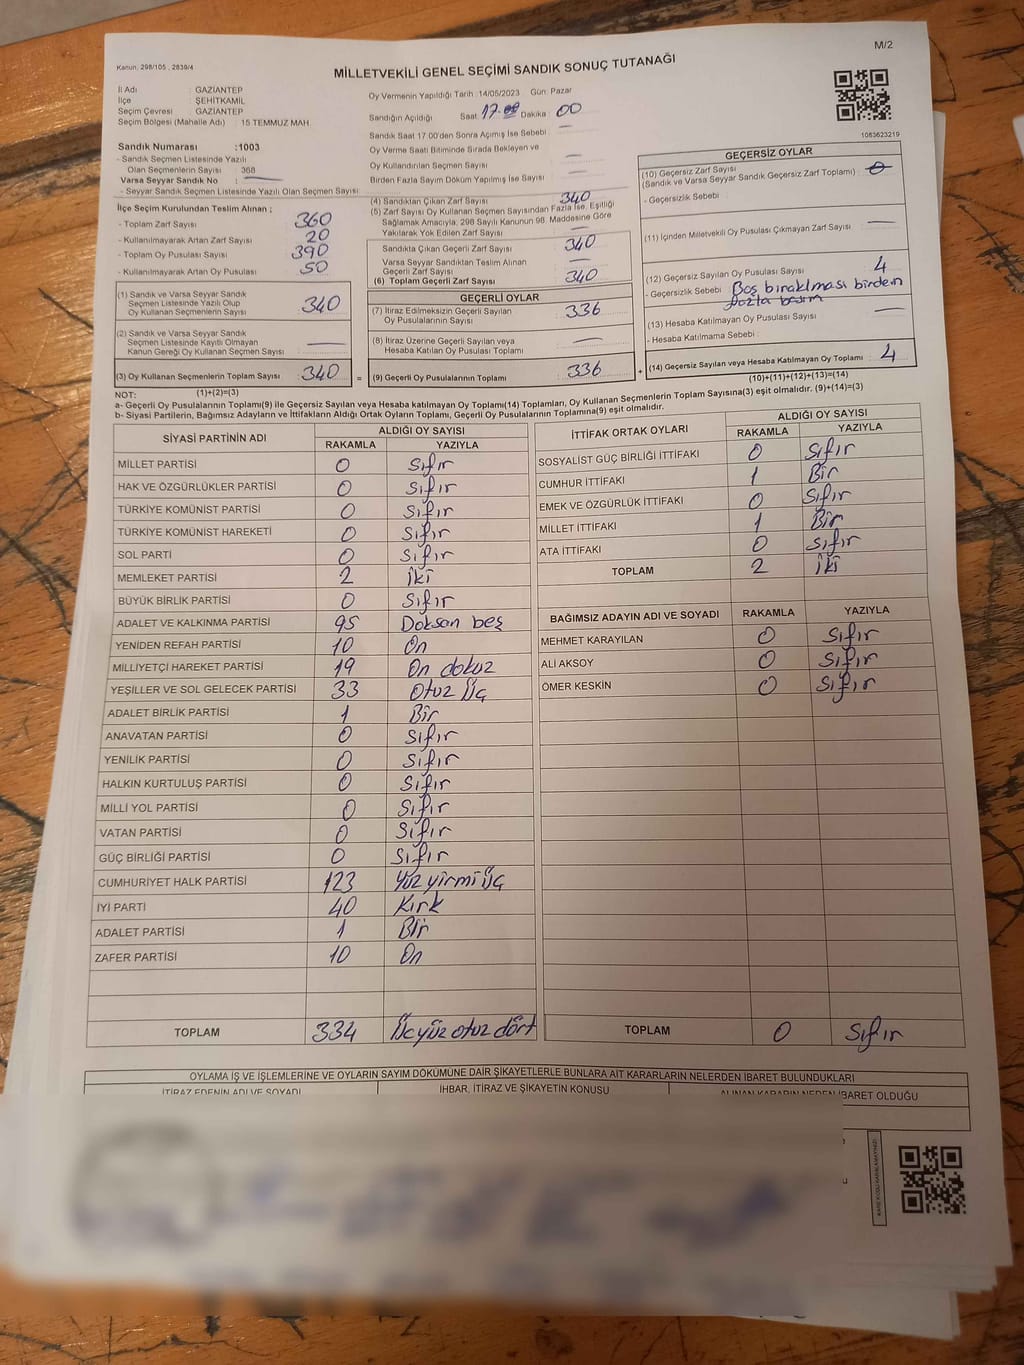 M/2
Kanun, 298/105 , 2839/4
MİLLETVEKİLİ GENEL SEÇİMİ SANDIK SONUÇ TUTANAĞI
İl Adı : GAZİANTEP
İlçe : ŞEHİTKAMİL
Seçim Çevresi : GAZİANTEP
Seçim Bölgesi (Mahalle Adı) : 15 TEMMUZ MAH.
Oy Vermenin Yapıldığı Tarih :14/05/2023 Gün: Pazar
Sandığın Açıldığı Saat : 17.00 Dakika : 00
Sandık Saat 17.00'den Sonra Açımış İse Sebebi : —
Oy Verme Saati Bitiminde Sırada Bekleyen ve
Oy Kullandırılan Seçmen Sayısı : —
Birden Fazla Sayım Döküm Yapılmış İse Sayısı : —
1083623219
Sandık Numarası :1003
- Sandık Seçmen Listesinde Yazılı
Olan Seçmenlerin Sayısı : 368
Varsa Seyyar Sandık No : —
- Seyyar Sandık Seçmen Listesinde Yazılı Olan Seçmen Sayısı:
İlçe Seçim Kurulundan Teslim Alınan ;
- Toplam Zarf Sayısı : 360
- Kullanılmayarak Artan Zarf Sayısı : 20
- Toplam Oy Pusulası Sayısı : 390
- Kullanılmayarak Artan Oy Pusulası : 50
(1) Sandık ve Varsa Seyyar Sandık
Seçmen Listesinde Yazılı Olup
Oy Kullanan Seçmenlerin Sayısı : 340
(2) Sandık ve Varsa Seyyar Sandık
Seçmen Listesinde Kayıtlı Olmayan
Kanun Gereği Oy Kullanan Seçmen Sayısı : —
(3) Oy Kullanan Seçmenlerin Toplam Sayısı : 340 =
(1)+(2)=(3)
(4) Sandıktan Çıkan Zarf Sayısı : 340
(5) Zarf Sayısı Oy Kullanan Seçmen Sayısından Fazla İse, Eşitliği
Sağlamak Amacıyla, 298 Sayılı Kanunun 98. Maddesine Göre
Yakılarak Yok Edilen Zarf Sayısı : —
Sandıkta Çıkan Geçerli Zarf Sayısı : 340
Varsa Seyyar Sandıktan Teslim Alınan
Geçerli Zarf Sayısı : —
(6) Toplam Geçerli Zarf Sayısı : 340
GEÇERLİ OYLAR
(7) İtiraz Edilmeksizin Geçerli Sayılan
Oy Pusulalarının Sayısı : 336
(8) İtiraz Üzerine Geçerli Sayılan veya
Hesaba Katılan Oy Pusulası Toplamı : —
(9) Geçerli Oy Pusulalarının Toplamı : 336 +
GEÇERSİZ OYLAR
(10) Geçersiz Zarf Sayısı
(Sandık ve Varsa Seyyar Sandık Geçersiz Zarf Toplamı) : 0
- Geçersizlik Sebebi :
(11) İçinden Milletvekili Oy Pusulası Çıkmayan Zarf Sayısı : —
(12) Geçersiz Sayılan Oy Pusulası Sayısı : 4
- Geçersizlik Sebebi : Boş bırakılması birden
fazla basım
(13) Hesaba Katılmayan Oy Pusulası Sayısı : —
- Hesaba Katılmama Sebebi :
(14) Geçersiz Sayılan veya Hesaba Katılmayan Oy Toplamı : 4
(10)+(11)+(12)+(13)=(14)
NOT:
a- Geçerli Oy Pusulalarının Toplamı(9) ile Geçersiz Sayılan veya Hesaba katılmayan Oy Toplamı(14) Toplamları, Oy Kullanan Seçmenlerin Toplam Sayısına(3) eşit olmalıdır. (9)+(14)=(3)
b- Siyasi Partilerin, Bağımsız Adayların ve İttifakların Aldığı Ortak Oyların Toplamı, Geçerli Oy Pusulalarının Toplamına(9) eşit olmalıdır.
SİYASİ PARTİNİN ADI ALDIĞI OY SAYISI
RAKAMLA YAZIYLA
MİLLET PARTİSİ 0 Sıfır
HAK VE ÖZGÜRLÜKLER PARTİSİ 0 Sıfır
TÜRKİYE KOMÜNİST PARTİSİ 0 Sıfır
TÜRKİYE KOMÜNİST HAREKETİ 0 Sıfır
SOL PARTİ 0 Sıfır
MEMLEKET PARTİSİ 2 İki
BÜYÜK BİRLİK PARTİSİ 0 Sıfır
ADALET VE KALKINMA PARTİSİ 95 Doksan beş
YENİDEN REFAH PARTİSİ 10 On
MİLLİYETÇİ HAREKET PARTİSİ 19 On dokuz
YEŞİLLER VE SOL GELECEK PARTİSİ 33 Otuz Üç
ADALET BİRLİK PARTİSİ 1 Bir
ANAVATAN PARTİSİ 0 Sıfır
YENİLİK PARTİSİ 0 Sıfır
HALKIN KURTULUŞ PARTİSİ 0 Sıfır
MİLLİ YOL PARTİSİ 0 Sıfır
VATAN PARTİSİ 0 Sıfır
GÜÇ BİRLİĞİ PARTİSİ 0 Sıfır
CUMHURİYET HALK PARTİSİ 123 Yüz yirmi üç
İYİ PARTİ 40 Kırk
ADALET PARTİSİ 1 Bir
ZAFER PARTİSİ 10 On
TOPLAM 334 Üçyüz otuz dört
İTTİFAK ORTAK OYLARI ALDIĞI OY SAYISI
RAKAMLA YAZIYLA
SOSYALİST GÜÇ BİRLİĞİ İTTİFAKI 0 Sıfır
CUMHUR İTTİFAKI 1 Bir
EMEK VE ÖZGÜRLÜK İTTİFAKI 0 Sıfır
MİLLET İTTİFAKI 1 Bir
ATA İTTİFAKI 0 Sıfır
TOPLAM 2 İki
BAĞIMSIZ ADAYIN ADI VE SOYADI RAKAMLA YAZIYLA
MEHMET KARAYILAN 0 Sıfır
ALİ AKSOY 0 Sıfır
ÖMER KESKİN 0 Sıfır
TOPLAM 0 Sıfır
OYLAMA İŞ VE İŞLEMLERİNE VE OYLARIN SAYIM DÖKÜMÜNE DAİR ŞİKAYETLERLE BUNLARA AİT KARARLARIN NELERDEN İBARET BULUNDUKLARI
İTİRAZ EDENİN ADI VE SOYADI İHBAR, İTİRAZ VE ŞİKAYETİN KONUSU ALINAN KARARIN NEDEN İBARET OLDUĞU